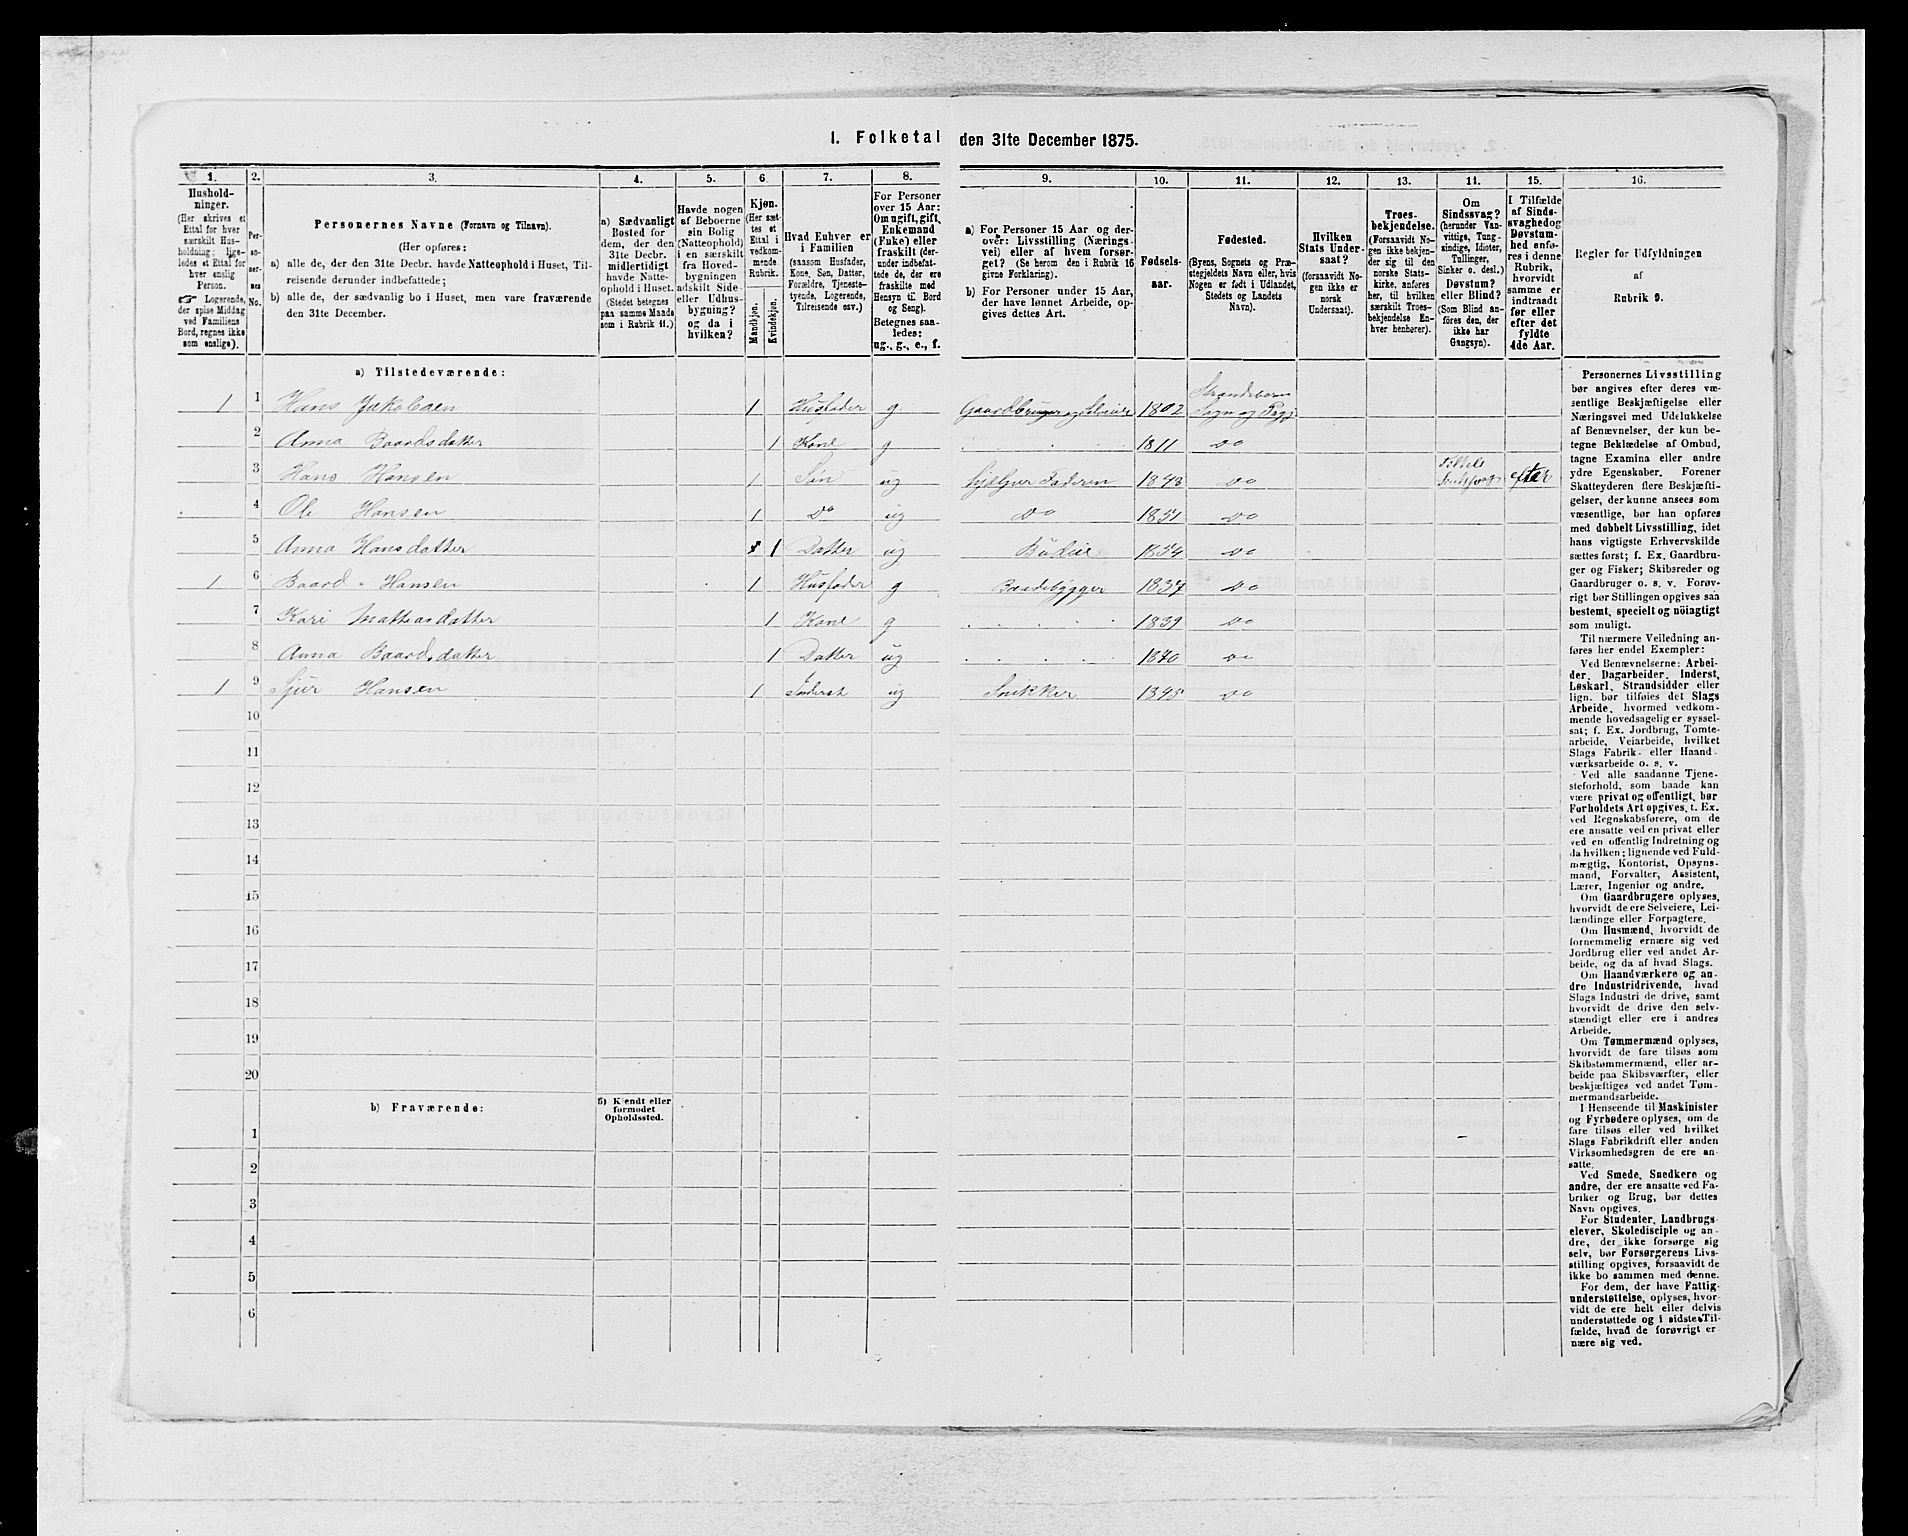 I. Folketal den 31te December 1875.
1. 2. 3. 4. 5. 6. 7. 8. 9. 10. 11. 12. 13. 14. 15. 16.
Hushold-
ninger.
(Her skrives et
Ettal for hver
særskilt Hus-
holdning; lige-
ledes et Ettal for
hver enslig
Person.
☞ Logerende,
der spise Middag
ved Familiens
Bord, regnes ikke
som enslige).
Per-
so-
ner-
nes
No.
Personernes Navne (Fornavn og Tilnavn).
(Her opføres:
a) alle de, der den 31te Decbr. havde Natteophold i Huset, Til-
reisende derunder indbefattede;
b) alle de, der sædvanlig bo i Huset, men vare fraværende
den 31te December.
a) Sædvanligt
Bosted for
dem, der den
31te Decbr.
midlertidigt
havde Natte-
ophold i Huset.
(Stedet betegnes
paa samme Maade
som i Rubrik 11.)
Havde nogen
af Beboerne
sin Bolig
(Natteophold)
i en særskilt
fra Hoved-
bygningen
adskilt Side-
eller Udhus-
bygning?
og da i
hvilken?
Kjøn.
(Her sæt-
tes et
Ettal i
vedkom-
mende
Rubrik.
Mandkjøn.
Kvindekjøn.
Hvad Enhver er
i Familien
(saasom Husfader,
Kone, Søn, Datter,
Forældre, Tjeneste-
tyende, Logerende,
Tilreisende osv.)
For Personer
over 15 Aar:
Om ugift, gift,
Enkemand
(Enke) eller
fraskilt (der-
under indbefat-
tede de, der ere
fraskilte med
Hensyn til Bord
og Seng).
Betegnes saa-
ledes:
ug., g., e., f.
a) For Personer 15 Aar og der-
over: Livsstilling (Nærings-
vei) eller af hvem forsør-
get? (Se herom den i Rubrik 16
givne Forklaring).
b) For Personer under 15 Aar,
der have lønnet Arbeide, op-
gives dettes Art.
Fødsels-
aar.
Fødested.
(Byens, Sognets og Præ-
stegjeldets Navn eller, hvis
Nogen er født i Udlandet,
Stedets og Landets
Navn).
Hvilken
Stats Under-
saat?
(forsaavidt No-
gen ikke er
norsk
Undersaat).
Troes-
bekjendelse.
(Forsaavidt No-
gen ikke bekjen-
der sig til den
norske Stats-
kirke, anføres
her, til hvilken
særskilt Troes-
bekjendelse En-
hver henhører).
Om
Sindssvag?
(herunder Van-
vittige, Tung-
sindige, Idioter,
Tullinger,
Sinker o. desl.)
Døvstum?
eller Blind?
(Som Blind an-
føres den, der
ikke har
Gangsyn).
I Tilfælde
af Sinds-
svaghed og
Døvstum-
hed anfø-
res i denne
Rubrik,
hvorvidt
samme er
indtraadt
før eller
efter det
fyldte
4de Aar.
Regler for Udfyldningen
af
Rubrik 9.
a) Tilstedeværende:
1 1 Hans Jakobsen 1 Husfader g Gaardbruger og Selveier 1802 Sogn og
2 Anna Baardsdatter 1 Kone g 1811 Do
3 Hans Hansen 1 Søn ug hjelper Faderen 1843 Do Sindssvag efter
4 Ole Hansen 1 Do ug Do 1851 Do
5 Anna Hansdatter 1 Datter ug Budeie 1854 Do
1 6 Baard Hansen 1 Husfader g Baadebygger 1837 Do
7 Kari Mathiasdatter 1 Kone g 1839 Do
8 Anna Baardsdatter 1 Datter ug 1870 Do
1 9 Sjur Hansen 1 Inderst ug Snikker 1845 Do
10
11
12
13
14
15
16
17
18
19
20
b) Fraværende: b) Kjendt eller
formodet
Opholdssted.
1
2
3
4
5
6
Personernes Livsstilling
bør angives efter deres væ-
sentlige Beskjæftigelse eller
Næringsvei med Udelukkelse
af Benævnelser, der kun be-
tegne Beklædelse af Ombud,
tagne Examina eller andre
ydre Egenskaber. Forener
Skatteyderen flere Beskjæfti-
gelser, der kunne ansees som
væsentlige, bør han opføres
med dobbelt Livsstilling, idet
hans vigtigste Erhvervskilde
sættes først; f. Ex. Gaardbru-
ger og Fisker; Skibsreder og
Gaardbruger o. s. v. Forøv-
rigt bør Stillingen opgives saa
bestemt, specielt og nöiagtigt
som muligt.
Til nærmere Veiledning an-
føres her endel Exempler:
Ved Benævnelserne: Arbei-
der, Dagarbeider, Inderst,
Løskarl, Strandsidder eller
lign. bør tilføies det Slags
Arbeide, hvormed vedkom-
mende hovedsagelig er syssel-
sat; f. Ex. Jordbrug, Tomte-
arbeide, Veiarbeide, hvilket
Slags Fabrik- eller Haand-
værksarbeide o. s. v.
Ved alle saadanne Tjene-
steforhold, som baade kan
være privat og offentligt, bør
Forholdets Art opgives, t. Ex.
ved Regnskabsførere, om de
ere ansatte ved en privat eller
ved en offentlig Indretning og
da hvilken; lignende ved Fuld-
mægtig, Kontorist, Opsyns-
mand, Forvalter, Assistent,
Lærer, Ingeniør og andre.
Om Gaardbrugere oplyses,
hvorvidt de ere Selveiere, Lei-
lændinge eller Forpagtere.
Om Husmænd, hvorvidt de
fornemmelig ernære sig ved
Jordbrug eller ved andet Ar-
beide, og da af hvad Slags.
Om Haandværkere og an-
dre Industridrivende, hvad
Slags Industri de drive, samt
hvorvidt de drive den selv-
stændigt eller ere i andres
Arbeide.
Om Tømmermænd oplyses,
hvorvidt de fare tilsøs som
Skibstømmermænd, eller ar-
beide paa Skibsværfter, eller
beskjæftiges ved andet Tøm-
mermandsarbeide.
I Henseende til Maskinister
og Fyrbødere oplyses, om de
fare tilsøs eller ved hvilket
Slags Fabrikdrift eller anden
Virksomhedsgren de ere an-
satte.
Ved Smede, Snedkere og
andre, der ere ansatte ved Fa-
briker og Brug, bør dettes
Navn opgives.
For Studenter, Landbrugs-
elever, Skoledisciple og an-
dre, der ikke forsørge sig
selv, bør Forsørgerens Livs-
stilling opgives, forsaavidt de
ikke bo sammen med denne.
For dem, der have Fattig-
understøttelse, oplyses, hvor-
vidt de ere helt eller delvis
understøttede og i sidste Til-
fælde, hvad de forøvrigt er-
nære sig ved.